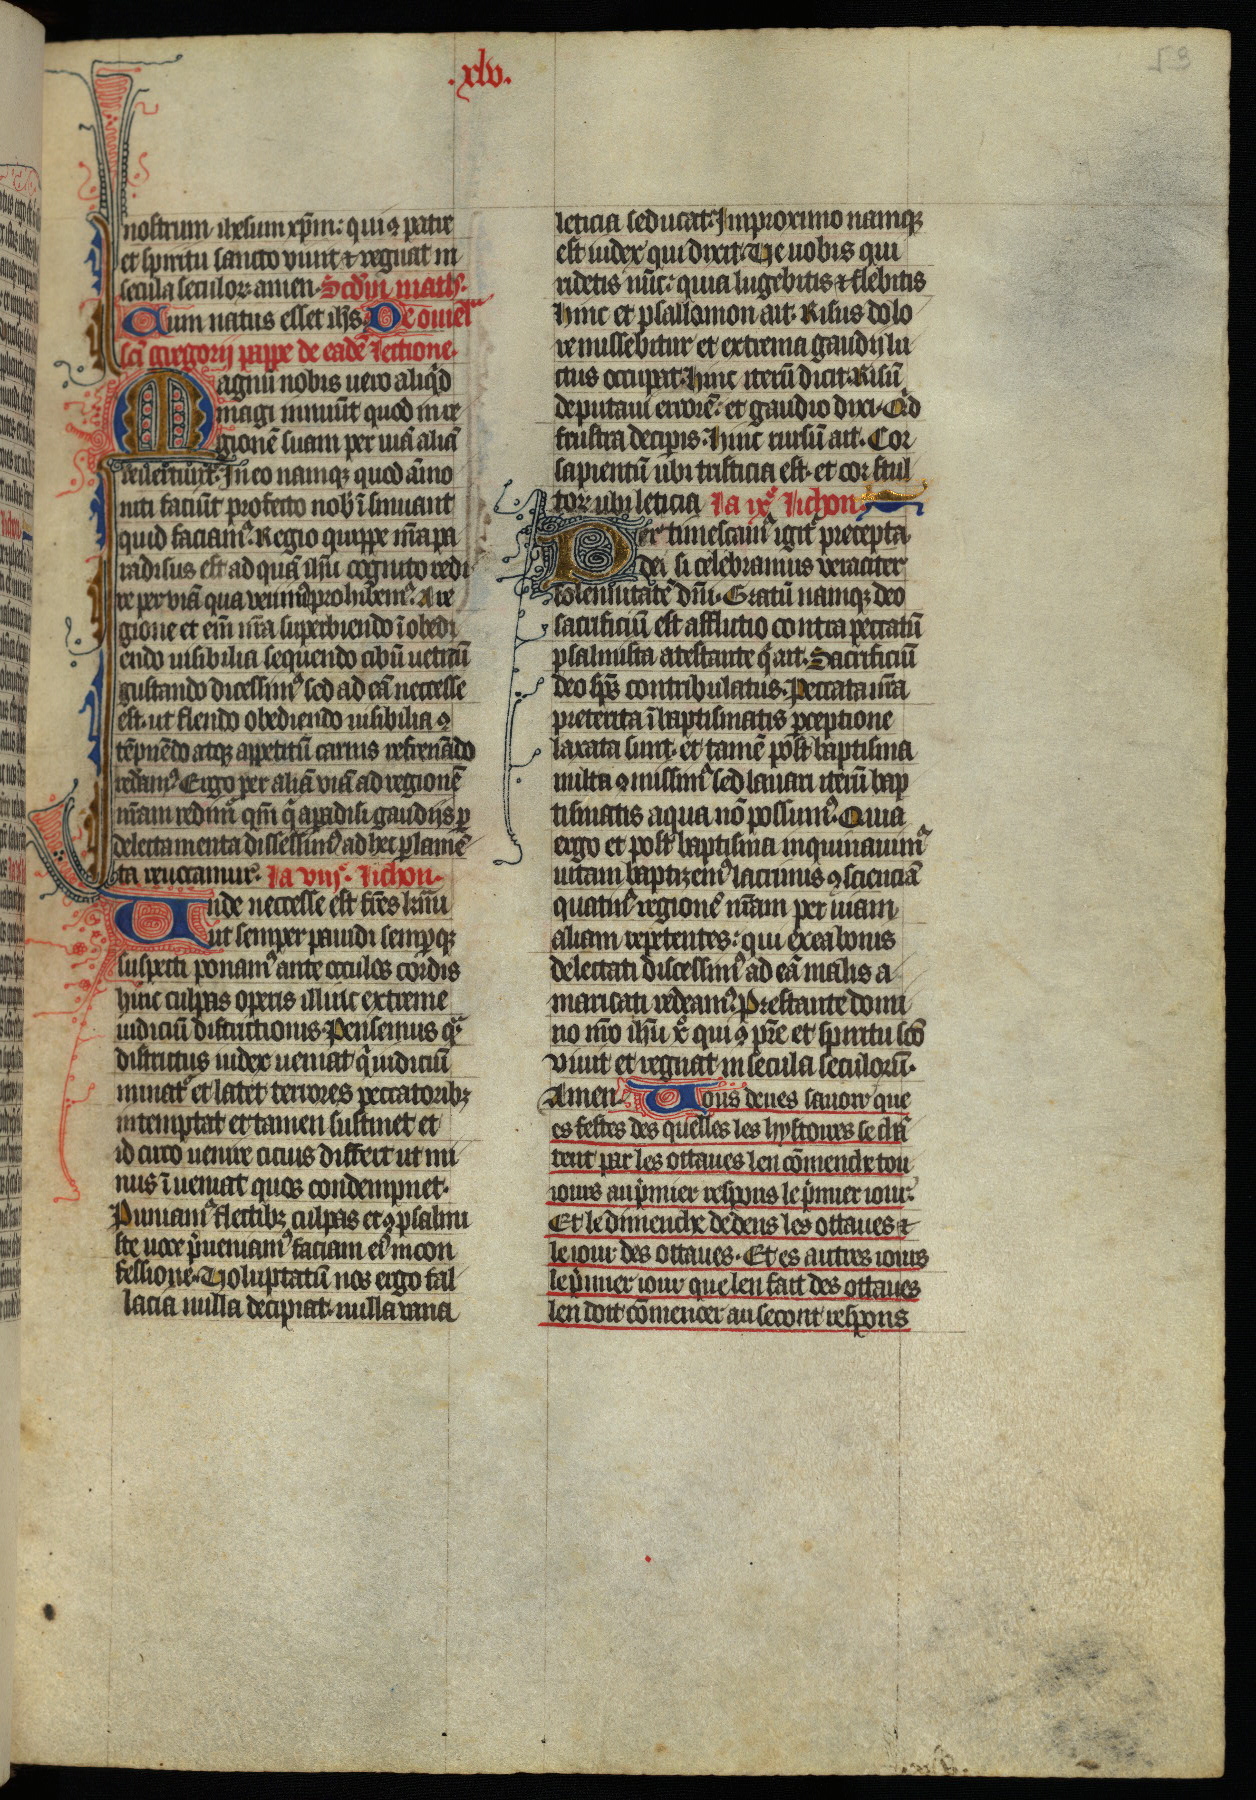 .xlv.
53
nostrum ihesum xp̄m: qui ꝯ patre
et spiritu sancto viuit ⁊ regnat in
secula seculoꝝ amen. Scd̄m math̄.
Cum natus esset ihs̄. De omel̄
sci gregorij pappe de eadē lectione.
Magnū nobis uero aliqͥd
magi innuūt quod in re
gionē suam per uiā aliā
reuertunt̉. In eo namqꝫ quod am̄o
niti faciūt profecto nob̄ īsinuant
quid faciamꝰ. Regio quippe nr̄a pa
radisus est ad quā ihū cognito redi
re per viā qua venimꝰ prohibemꝰ. A re
gione et eni nr̄a superbiendo īobedi
endo uisibilia sequendo cibū uetitū
gustando dicessimꝰ sed ad eā neccesse
est. ut flendo obediendo uisibilia ꝯ
tēpnēdo atqꝫ appetitū carnis refrenādo
redamꝰ. Ergo per aliā viā ad regionē
nr̄am redimꝰ qm̄ q̄ a padisi gaudijs ꝑ
delectamenta dissessimꝰ ad hec ꝑ lamē
ta reuccamur. La viijͤ. lichon.
Unde neccesse est fr̄es kmī
ut semper pauidi semꝑqꝫ
suspecti ponamꝰ ante occulos cordis
hinc culpas operis illinc extreme
iudiciū districtionis. Pensemus qͣ
districtus iudex ueniat q̄ iudiciū
minat̉ et latet terrores peccatoribꝫ
intemptat et tamen sustinet et
id circo uenire cicius differt ut mi
nus īueniat quos condempnet.
Puniamꝰ fletibꝫ culpas et ꝯ psalmi
ste uoce p̄ueniamꝰ faciam eiꝰ in con
fessione. Uoluptatū nos ergo fal
lacia nulla decipiat. nulla vana
leticia seducat. In proximo namqꝫ
est iudex qui dixit. Ue uobis qui
ridetis nūc: quia lugebitis ⁊ flebitis
Hinc et psallomon ait. Risus dolo
re missebitur et extrema gaudij lu
ctus occupat. hinc iterū dicit. Risū
deputaui errorē: et gaudio dixi. Qͥd
frustra decipis. Hinc rursū ait. Cor
sapientū ubi tristicia est. et cor stul
toꝝ ubi leticia La ixͤ lichon.
Per timescamꝰ igit̉ precepta
dei si celebramus veraciter
solennitatē dn̄i. Gratū namqꝫ deo
sacrificiū est afflictio contra peccatū
psalmista atestante q̄ ait. Sacrificiū
deo sp̄s contribulatus. Peccata nr̄a
preterita ī baptismatis ꝑceptione
laxata sunt. et tamē pōst baptisma
multa ꝯmissimꝰ sed lauari iterū bap
tismatis aqua nō possumꝰ. Quia
ergo et post baptisma inquinauimꝰ
uitam baptizemꝰ lacrimis ꝯscienciā
quatinꝰ regionē nr̄am per uiam
aliam repetentes: qui ex ea bonis
delectati discessimꝰ ad eā malis a
maricati redeamꝰ. Prestante domi
no nr̄o ihū x̄ qui ꝯ pr̄e et spiritu scō
viuit et regnat in secula seculorū.
Amen. Uous deues sauoir que
es festes des quelles les hystoires se chā
tent par les ottaues len cōmenche tou
iours au p̄mier respons le p̄mier iour.
Et le dimenche dedens les ottaues ⁊
le iour des ottaues. Et es autres iours
le p̄mier iour que len fait des ottaues
len doit cōmencer au secont respons